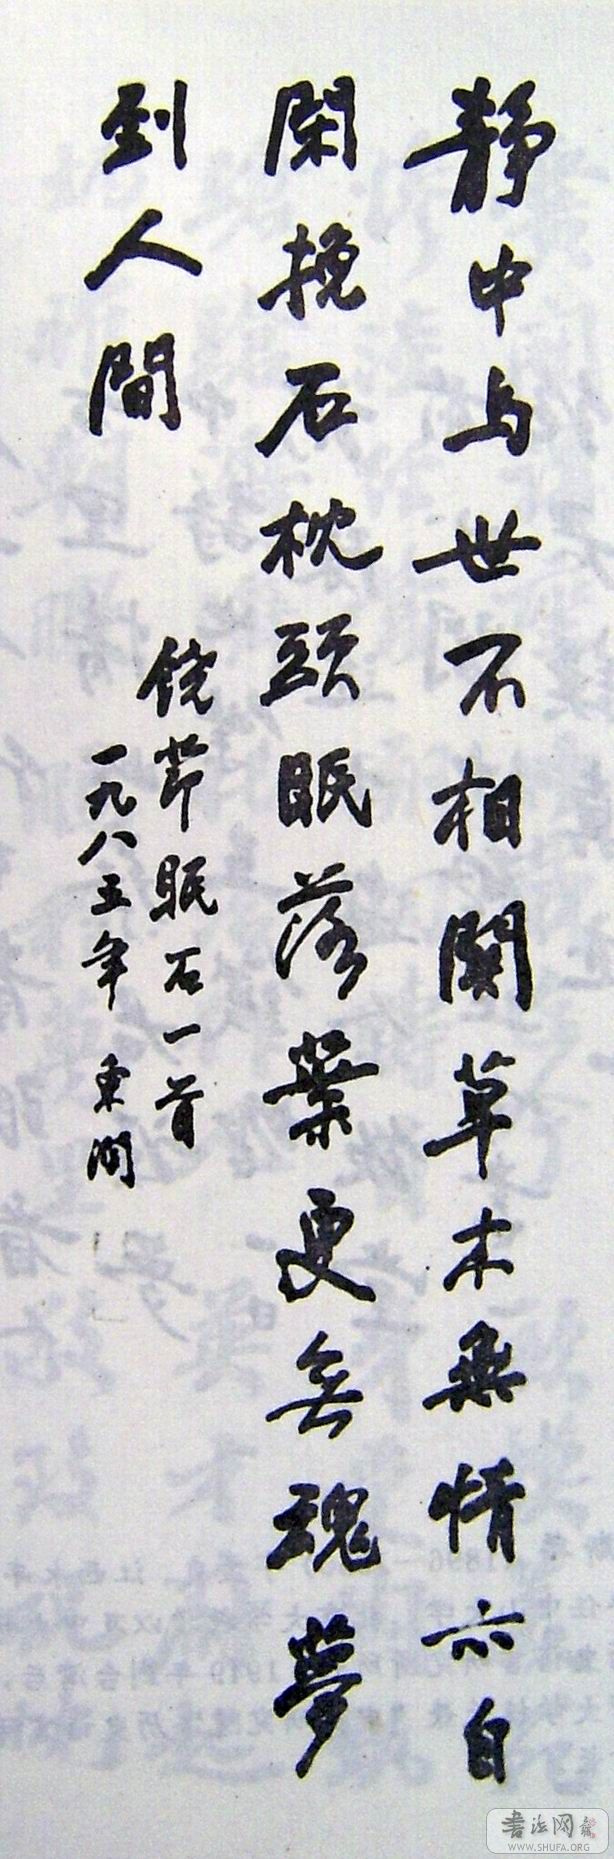 靜中与世不相關草木無情亦自
閑挽石枕頭眠落葉更無魂夢
到人間
饒節眠石一首
一九八五年
書法网
WWW.SHUFA.ORG